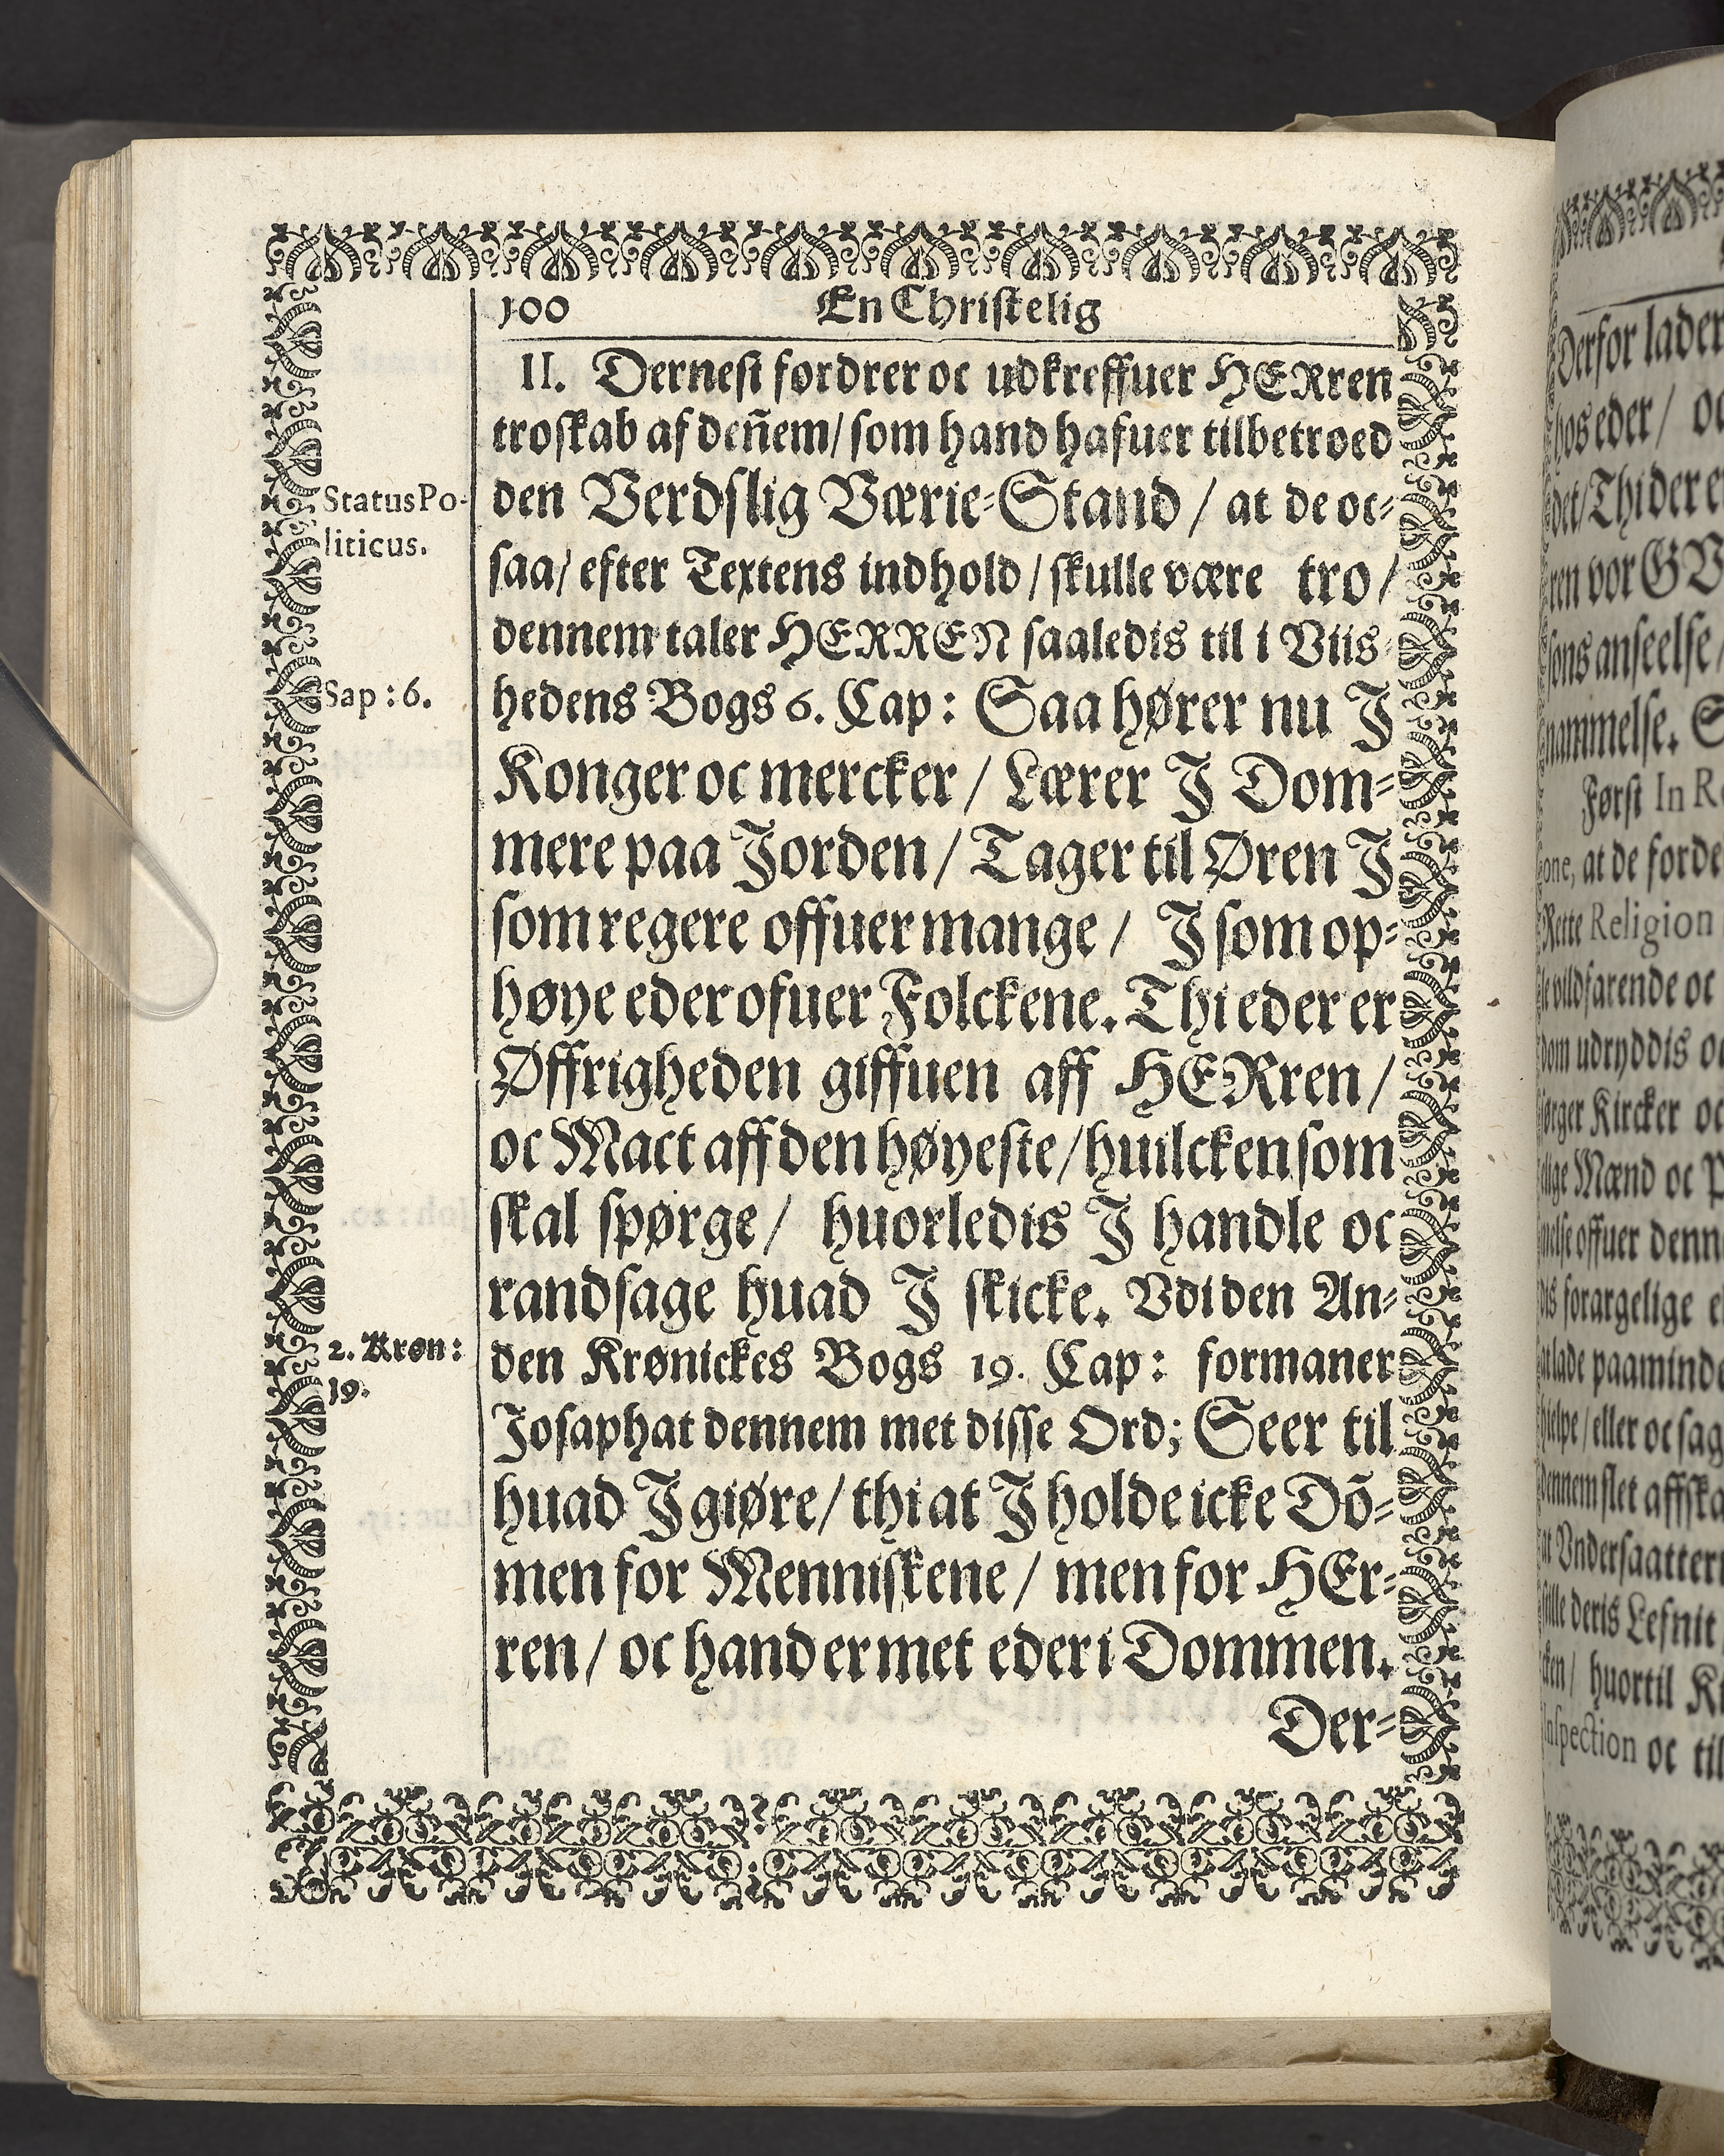 100 En Christelig
II. Dernest fordrer oc udkreffuer HERren
troskab af deñem/ som hand hafuer tilbetroed
StatusPo-
liticus.
den Verdslig Værie-Stand / at de oc-
saa/ efter Textens indhold / skulle være tro /
dennem taler HERREN saaledis til i Viis-
Sap : 6.
hedens Bogs 6. Cap : Saa hører nu J
Konger oc mercker / Lærer J Dom-
mere paa Jorden / Tager til Øren J
som regere offuer mange / J som op-
høye eder ofuer Folckene. Thi eder er
Øffrigheden giffuen aff HERren /
oc Mact aff den høyeste / huilcken som
skal spørge / huorledis J handle oc
randsage huad J skicke. Vdi den An-
2. Krøn :
19.
den Krønickes Bogs 19. Cap : formaner
Josaphat dennem met disse Ord; Seer til
huad J giøre/ thi at J holde icke Dõ-
men for Menniskene / men for HEr-
ren / oc hand er met eder i Dommen.
Der-
Derfor lader
hos eder / oc
det/ Thi der er
ren vor GV
sons anseelse /
nammelse. S
Først In Re
one, at de forde
Rette Religion
le vildfarende oc
dom udryddis oc
sørger Kircker oc
elige Mænd oc P
melse offuer denn
dis forargelige e
at lade paaminde
hielpe / eller oc sag
dennem slet affska
at Vndersaattern
stille deris Lefnit
cken / huortil Ki
Inspection oc til